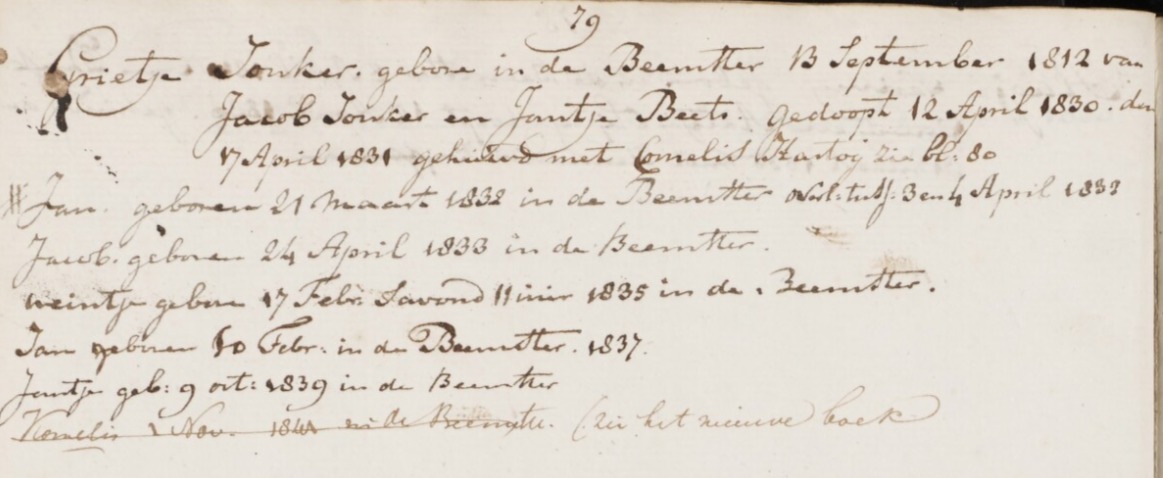 79
Grietje Jonker. gebore in de Beemster 13 September 1812 van
Jacob Jonker en Jantje Beets. gedoopt 12 April 1830. den
17 April 1831 gehuwd met Cornelis Hartog zie bl: 80
Jan. geboren 21 Maart 1832 in de Beemster overl: tuss: 3 en 4 April 1833
Jacob. geboren 24 April 1833 in de Beemster.
Weintje gebore 17 Febr. Savond 11 uur 1835 in de Beemster.
Jan geboren 10 Febr: in de Beemster. 1837.
Jantje geb: 9 oct: 1839 in de Beemster
Kornelis 1 Nov. 1841 in de Beemste. (zie het nieuwe boek